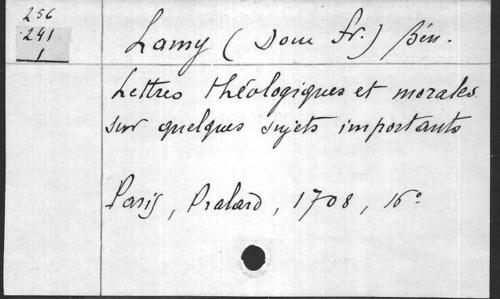 256
241
1
Lamy (Dom Fr.) Bén.
Lettres théologiques et morales
sur quelques sujets importants
Paris, Pralard, 1708, 16°